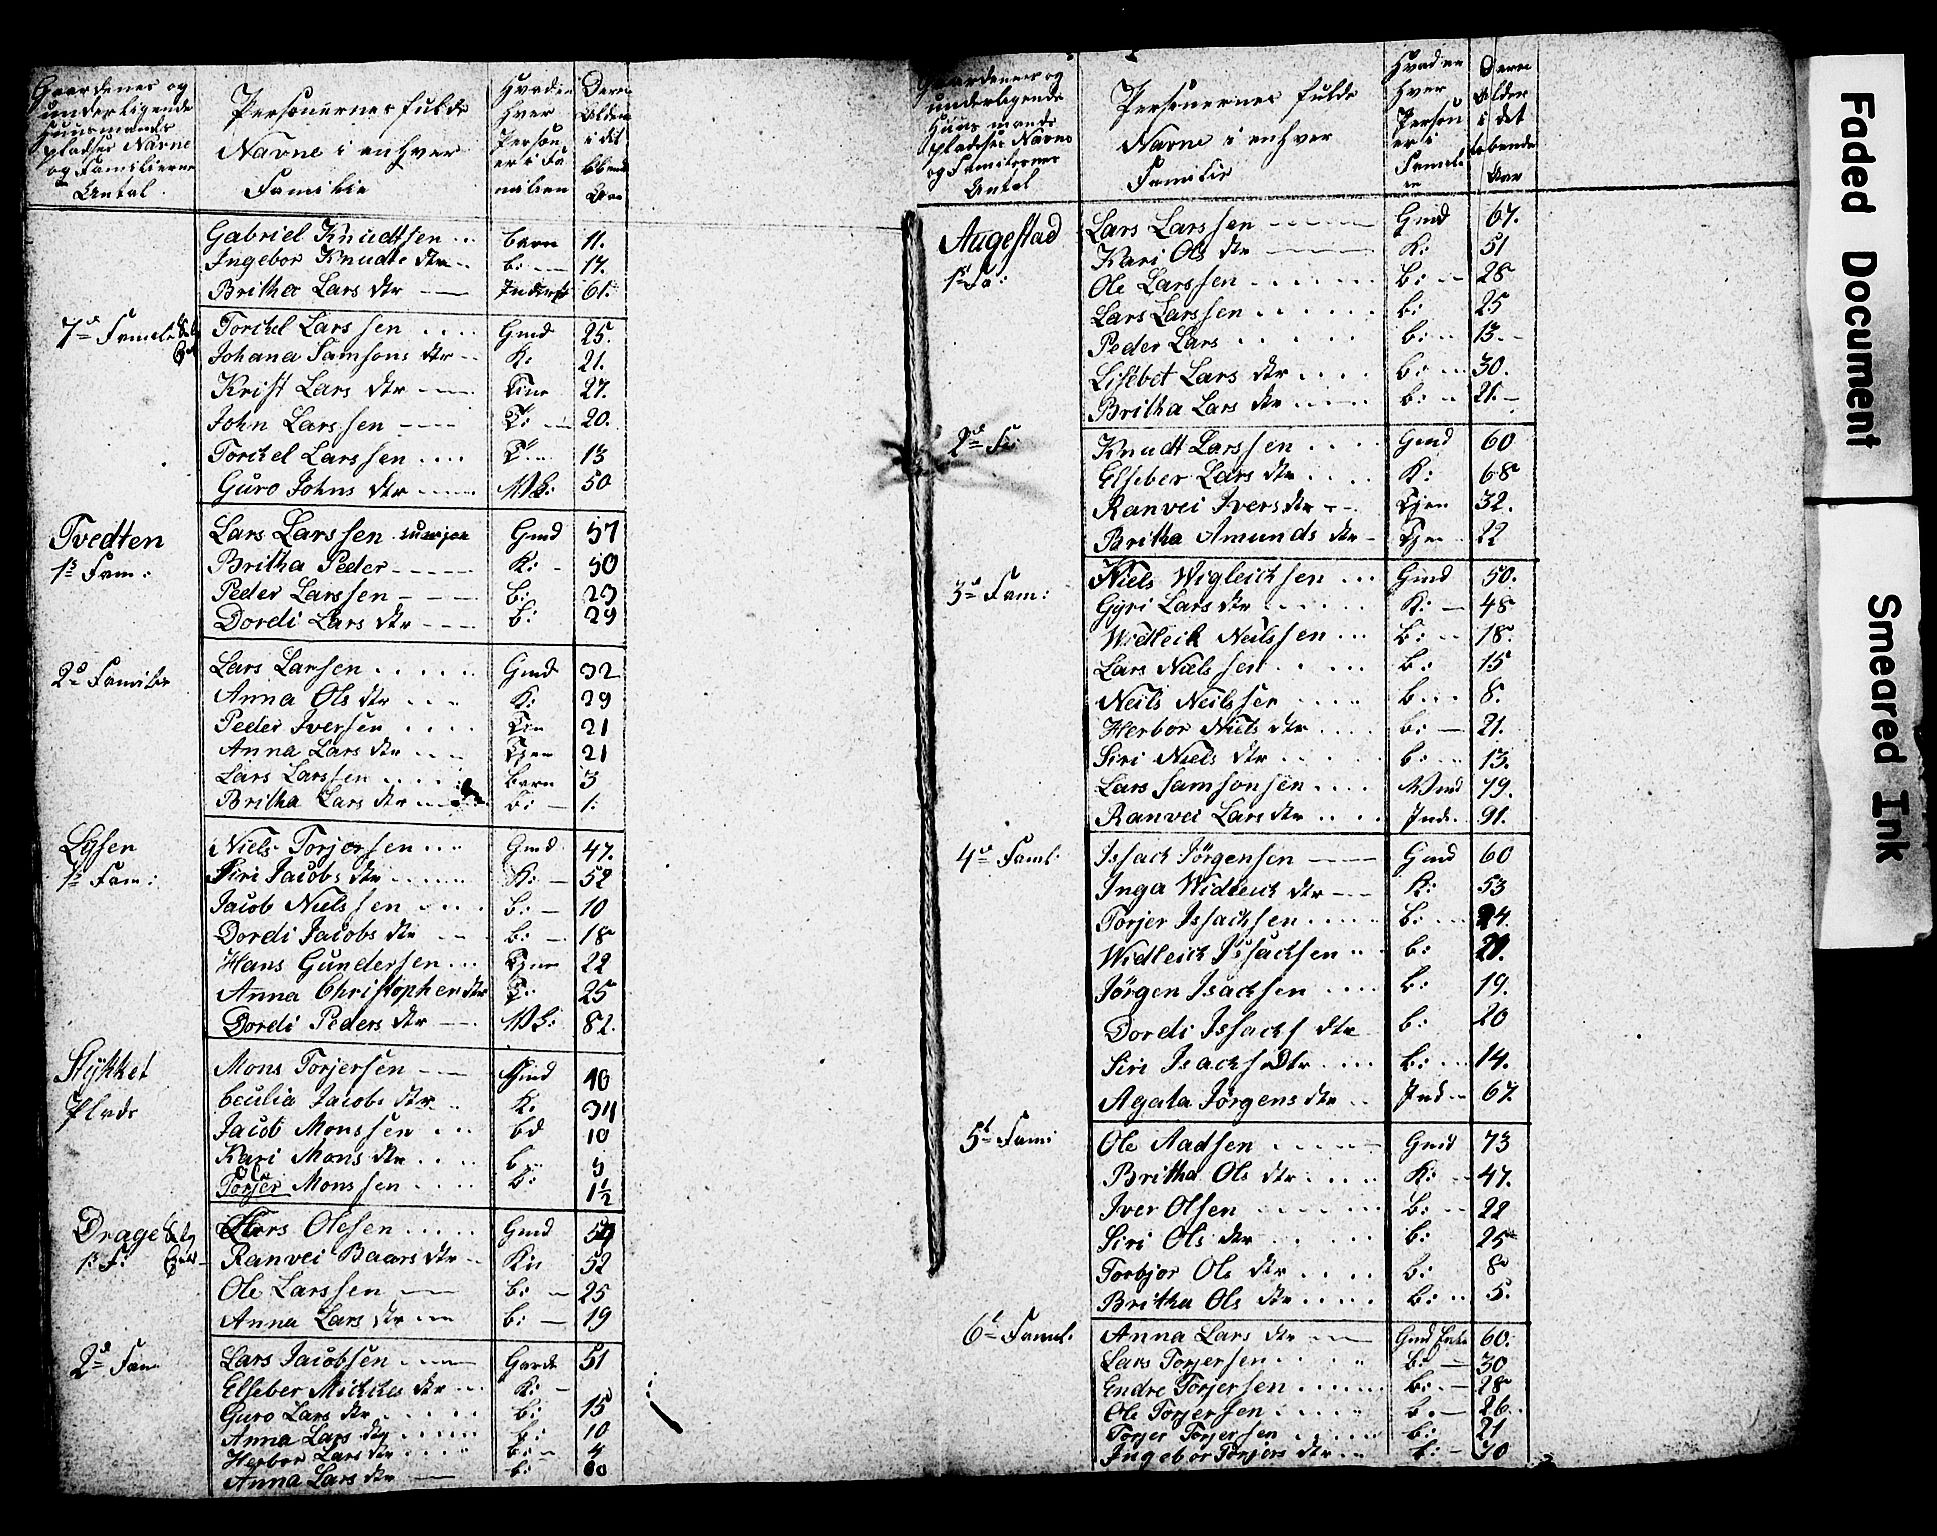 Gaardenes og
underliggende
Huusmands
pladser Navne
og Familiernes
Antal
Personernes fulde
Navne i enhver
Familie
Hvad en
hver
Person
er i Fa
milien
Deres
Alder
i det
løbende
Aar
Gabriel Knudtsen barn 11.
Ingebor Knudts dtr b: 17.
Britha Lars dtr Inderst 61.
7de Famile Torkel Larssen Gmd 25.
Johana Samsons dtr K: 21.
Krist Lars dtr Tine 27.
John Larssen T: 20.
Torkel Larssen T 13
Guro Johns dtr 50
Tvedten Lars Larssen Gmd 57
1s Fam: Britha Peder K: 50
Peder Larssen b: 23
Dordi Lars dtr b: 29
2d Familie Lars Larsen Gmd 32
Anna Ols dtr K: 29
Peder Iversen Tien 21
Anna Lars dtr Tjen 21
Lars Larssen barn 3
Britha Lars dtr b: 1.
Lysen Niels Torjersen Gmd 47.
1s Fam: Siri Jacobs dtr K: 52
Jacob Nielssen b: 10
Dordi Jacobs dtr b: 18
Hans Gundersen Tjen 22
Anna Christopher dtr T: 25
Dordi Peders dtr 82.
Stykket Mons Torjersen Gmd 40
Plads Cecilia Jacobs dtr K: 34
Jacob Monssen bd 10
Kari Mons dtr b 5
Ole
Torjer Monssen b: 1½
Drage Lars Olesen Gmd
1s F: Ranvei Baars dtr Kn 52
Ole Larssen b: 25
Anna Lars dtr b: 19
2d Fam Lars Jacobsen Garde 51
Elseber Michels dtr K:
Guro Lars dtr b: 15
Anna Lars dtr b: 10
Herbor Lars dtr b: 4
Anna Lars dtr b: 60
Gaardenes og
underliggende
Huusmands
pladser Navne
og Familiernes
Antal
Personernes fulde
Navne i enhver
Familie
Hvad en
hver
Person
er i
Famili
en
Deres
Alder
i det
løbende
Aar
Augestad Lars Larssen Gmd 67.
1s Fa: Kari Ols dtr K: 51
Ole Larssen b: 28
Lars Larssen b: 25
Peder Lars b: 13.
Lisebet Lars dtr b: 30.
Britha Lars dtr b: 21.
2d Fa: Knudt Larssen Gmd 60
Elseber Lars dtr K: 68
Ranvei Ivers dtr Tjen 32.
Britha Amunds dtr Tjen 22
3d Fam: Niels Wigleichsen Gmd 50.
Gyri Lars dtr K: 48
Widleik Neilssen b: 18.
Lars Nielssen b: 15
Neils Neilssen b 8.
Herbor Niels dtr b: 21.
Siri Niels dtr b: 13.
Lars Samsonsen 79.
Ranvei Lars dtr Ind. 91.
4de Faml: Issach Jörgensen Gmd 60
Inga Widleich dtr K: 53
Torjer Issachsen b: 24.
Widleich Issachsen b: 21.
Jörgen Isachsen b: 19.
Dordi Issachs dtr b: 20
Siri Isachs Dtr b: 14.
Agata Jörgens dtr Ind 67.
5t Fam: Ole Aadsen Gmd 73
Britha Ols dtr K: 47.
Iver Olsen b: 22
Siri Ols dtr b: 25
Torbjor Ols dtr b: 8
Britha Ols dtr b: 5.
6t Faml: Anna Lars dtr Gmd Enke 60.
Lars Torjersen b: 30
Endre Torjersen b: 28
Ole Torjersen b. 26.
Torjer Torjersen b: 21
Ingebor Torjers dtr b: 30
Faded Document
Smeared Ink